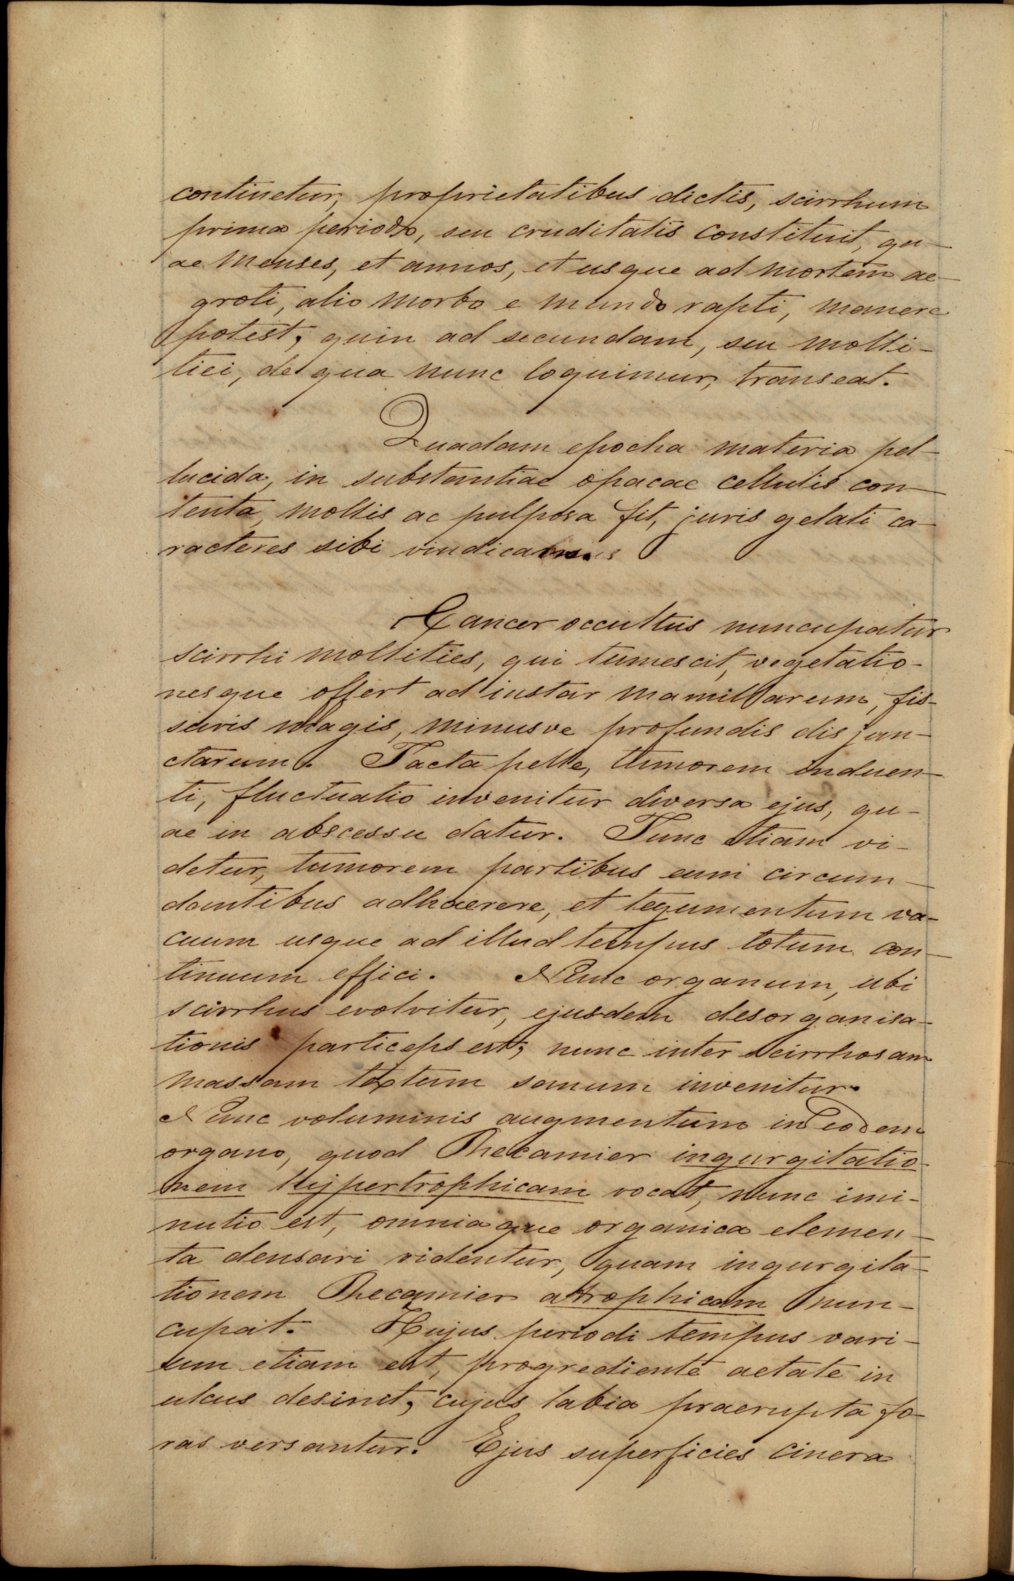 continetur, proprietatibus dictis, scirrhum
prima periodo, seu cruditatis constituit, qu-
ae menses, et annos, et usque ad mortem ae-
groti, alio morbo e mundo rapti, manere
potest, quin ad secundam, seu molli-
tiei, de qua nunc loquimur, transeat.
Quadam epocha materia pel-
lucida, in substantiae opacae cellulis con-
tenta, mollis ac pulposa fit, juris gelati ca-
racteres sibi
Cancer occultus nuncupatur
scirrhi mollities, qui tumescit, vegetatio-
nesque offert ad instar mamillarum, fis-
suris magis, minusve profundis disjun-
ctarum. Tacta pelle, tumorem induen-
ti, fluctuatio invenitur diversa ejus, qu-
ae in abscessu datur. Tunc etiam vi-
detur, tumorem partibus eum circum-
dantibus adhaerere, et tegumentum va-
cuum usque ad illud tempus totum con-
tinuum effici. Nunc organum, ubi
scirrhus evolvitur, ejusdem desorganisa-
tionis particeps est; nunc inter scirrhosam
massam textum sanum invenitur.
Nunc voluminis augmentum in eodem
organo, quod Recamier ingurgitatio-
nem hypertrophicam vocat, nunc imi-
nutio est, omniaque organica elemen-
ta densari videntur, quam ingurgita-
tionem Recamier atrophicam nun-
cupat. Hujus periodi tempus vari-
um etiam est, progrediente aetate in
ulcus desinet, cujus labia praerupta fo-
ras versantur. Ejus superficies cinera